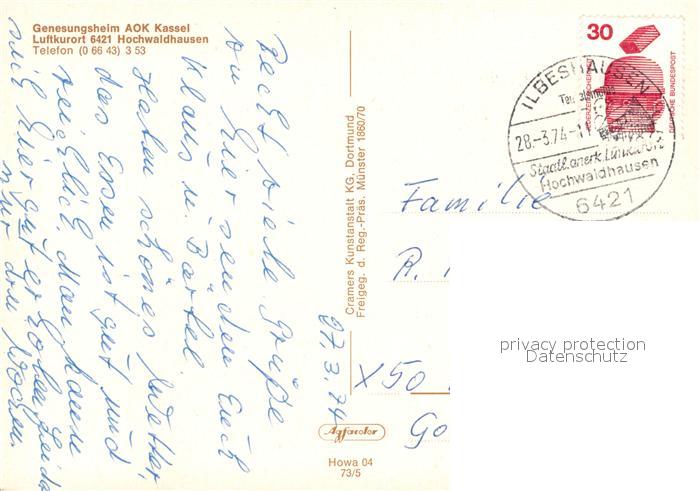 Genesungsheim AOK Kassel
Luftkurort 6421 Hochwaldhausen
Telefon (0 66 43) 3 53
Recht viele Grüße
von hier senden Euch
Klaus u. Bärbel.
Haben schönes Wetter,
das Essen ist gut und
reichlich. Man kann
sich hier gut erholen leider
nur drei Wochen.
27.3.74
Cramers Kunstanstalt KG., Dortmund
Freigeg. d. Reg.-Präs. Münster 1860/70
Agfacolor
Howa 04
73/5
30
DEUTSCHE BUNDESPOST
ILBESHAUSEN
28.-3.74-11
Staatl. anerk. Luftkurort
Hochwaldhausen
6421
Familie
R.
X50
Go
privacy protection
Datenschutz